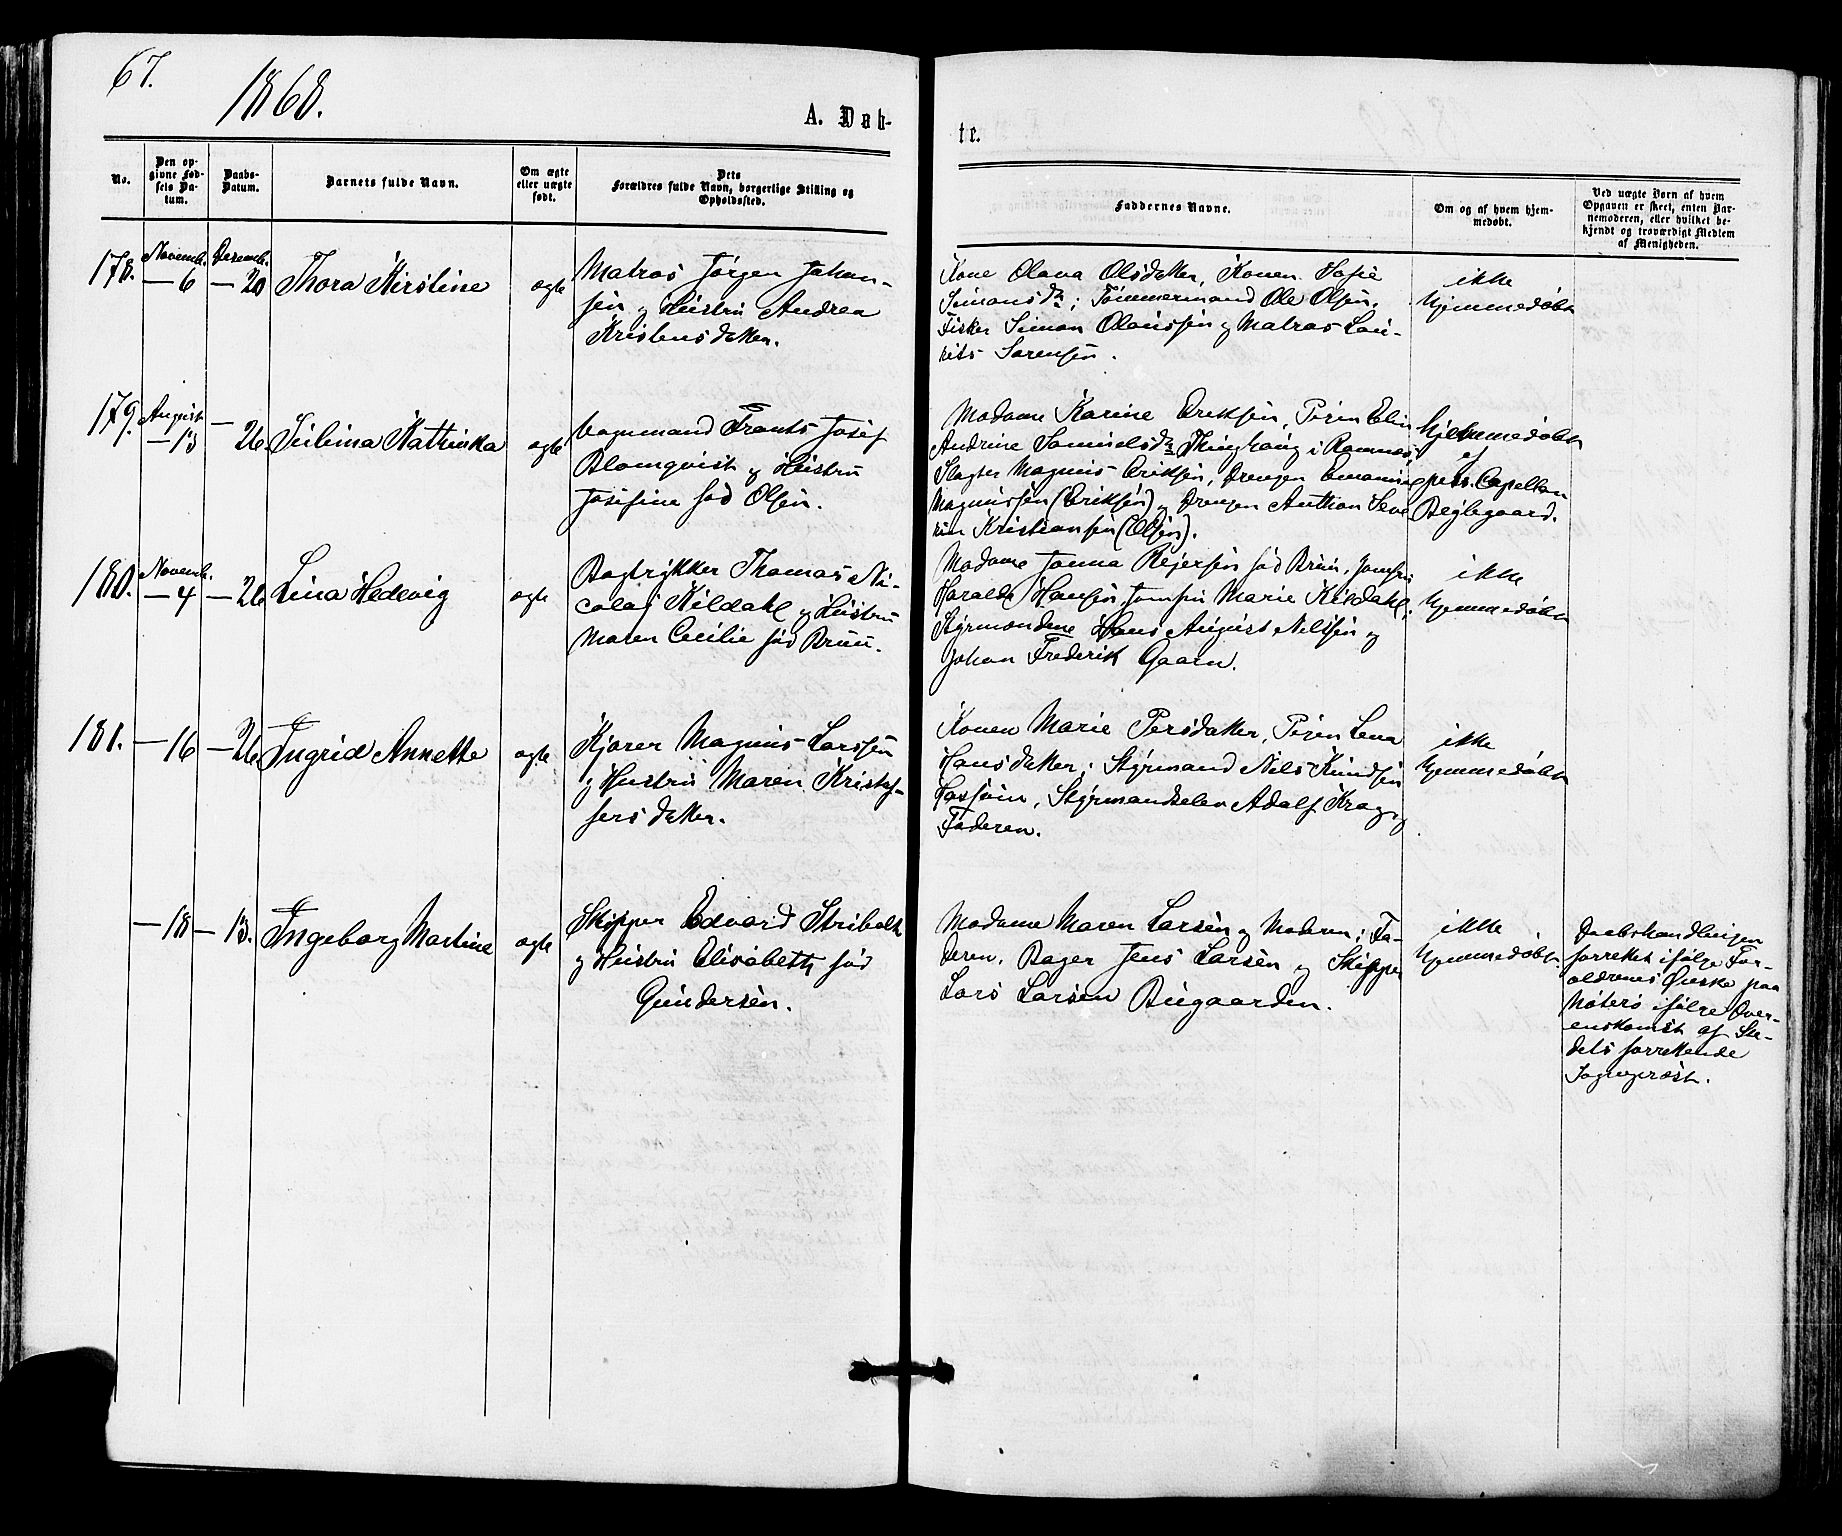 67.
1868.
A. Døb-
te.
No.
Den op-
givne Fød-
sels Da-
tum.
Daabs-
Datum.
Barnets fulde Navn.
Om ægte
eller uægte
født.
Dets
Forældres fulde Navn, borgerlige Stilling og
Opholdssted.
Faddernes Navne.
Om og af hvem hjem-
medøbt.
Ved uægte Børn af hvem
Opgaven er skeet, enten Bar-
nemoderen, eller hvilket be-
kjendt og troværdigt Medlem
af Menigheden.
178.
Novemb.
— 6
Decemb.
— 20
Thora Kirstine
ægte
Matros Jørgen Johan-
sen og Hustru Andrea
Kristensdatter.
Kone Olava Olsdatter, Konen Sofie
Simonsdr; Tømmermand Ole Olsen,
Fisker Simon Olaussen og Matros Lau-
rits Sørensen.
ikke
hjemmedøbt
179.
August
— 13
— 26
Kathinka
ægte
Vognmand Frants Josef
Blomqvist og Hustru
Josefine fød Olsen.
Madame Karine Eriksen, Pigen Elin
Andrine Samuelsdr Thinghaug i Ramnes,
Slagter Magnus Eriksen, Drengen
Magnussen (Eriksen) og Drengen Anthon Seve
rin Kristiansen (Olsen).
hjemmedøbt
af
pers. Capellan
Beglegaard.
180.
Novemb.
— 4
— 26
Lina Hedevig
ægte
Bogtrykker Thomas Ni-
colaj Kildahl og Hustru
Maren Cecilie fød Bruu.
Madame Janna Rejersen fød Bruu, Jomfru
Haralda Hansen, Jomfru Marie Kildahl,
Styrmændene Hans August Nilssen og
Johan Frederik Gaarn.
ikke
hjemmedøbt
181.
— 16
— 26
Ingrid Annette
ægte
Kjører Magnus Larssen
og Hustru Maren Kristof-
fersdatter.
Konen Marie Persdatter, Pigen Lena
Hansdatter; Styrmand Nils Knudsen
Styrmandselev Adolf Krag og
Faderen.
ikke
hjemmedøbt
— 18
— 13.
Ingeborg Martine
ægte
Skipper Edvard Stribolt
og Hustru Elisabeth fød
Gundersen.
Madame Maren Larsen og Moderen; Fa-
deren, Bager Jens Larsen og Skipper
Lars Larsen Buegaarden.
ikke
hjemmedøbt
Daabshandlingen
forrettet ifølge For-
ældrenes Ønske paa
Nøterø ifølge Over-
enskomst af Ste-
dets forrettende
Sogneprest.